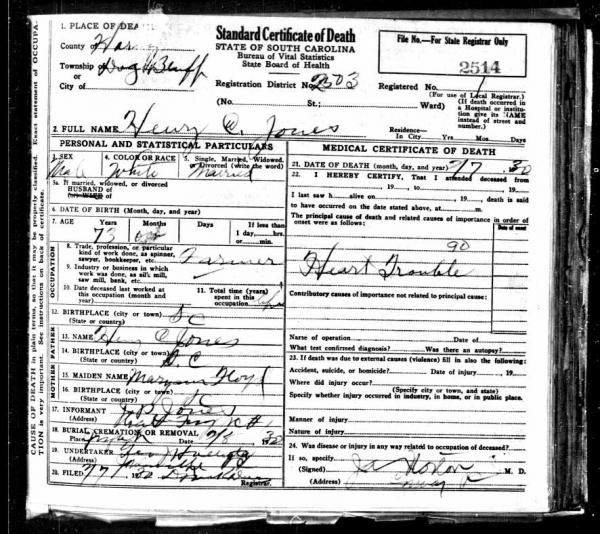 1. PLACE OF DEATH
County Horry
Township Dog Bluff
or
City of
Standard Certificate of Death
STATE OF SOUTH CAROLINA
Bureau of Vital Statistics
State Board of Health
File No.—For State Registrar Only
2514
Registration District No. 2503
Registered No.
(For use of Local Registrar.)
(No. St.; Ward)
(If death occurred in
a Hospital or institu-
tion give its NAME
instead of street and
number.)
2. FULL NAME Henry C. Jones
Residence—
In City Yrs. Mos. Days
PERSONAL AND STATISTICAL PARTICULARS
3. SEX
Male
4. COLOR OR RACE
White
5. Single, Married, Widowed,
or Divorced (write the word)
Married
5a. If married, widowed, or divorced
HUSBAND of
(or) WIFE of
6. DATE OF BIRTH (Month, day, and year)
7. AGE Years Months Days If less than
73
1 day, hrs.
or min.
OCCUPATION
8. Trade, profession, or particular
kind of work done, as spinner,
sawyer, bookkeeper, etc.
Farmer
9. Industry or business in which
work was done, as silk mill,
saw mill, bank, etc.
10. Date deceased last worked at
this occupation (month and
year)
11. Total time (years)
spent in this
occupation
12. BIRTHPLACE (city or town) S C
(State or country)
FATHER
13. NAME Henry C Jones
14. BIRTHPLACE (city or town) S. C
(State or country)
MOTHER
15. MAIDEN NAME Maryann Floyd
16. BIRTHPLACE (city or town)
(State or country)
17. INFORMANT Jones
(Address)
18. BURIAL, CREMATION OR REMOVAL
Place Date 7/8 1930
19. UNDERTAKER
(Address)
20. FILED 7/7 1930
Registrar.
MEDICAL CERTIFICATE OF DEATH
21. DATE OF DEATH (month, day, and year) 7/7 30
22. I HEREBY CERTIFY, That I attended deceased from
, 19 , to , 19
I last saw h alive on , 19 , death is said
to have occurred on the date stated above, at m.
The principal cause of death and related causes of importance in order of
onset were as follows:
Date of onset
90
Heart Trouble
Contributory causes of importance not related to principal cause:
Name of operation Date of
What test confirmed diagnosis? Was there an autopsy?
23. If death was due to external causes (violence) fill in also the following:
Accident, suicide, or homicide? Date of injury , 19
Where did injury occur?
(Specify city or town, and state)
Specify whether injury occurred in industry, in home, or in public place.
Manner of injury
Nature of injury
24. Was disease or injury in any way related to occupation of deceased?
If so, specify
(Signed) M. D.
(Address) Conway
CAUSE OF DEATH in plain terms, so that it may be properly classified. Exact statement of OCCUPA-
TION is very important. See instructions on back of certificate.